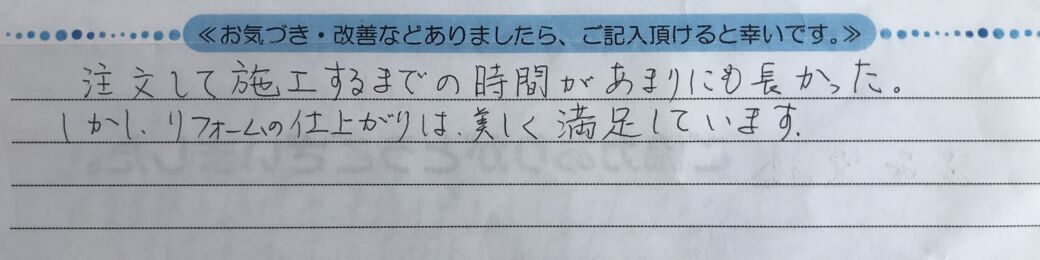 ≪お気づき・改善などありましたら、ご記入頂けると幸いです。≫
注文して施工するまでの時間があまりにも長かった。
しかし、リフォームの仕上がりは、美しく満足しています。